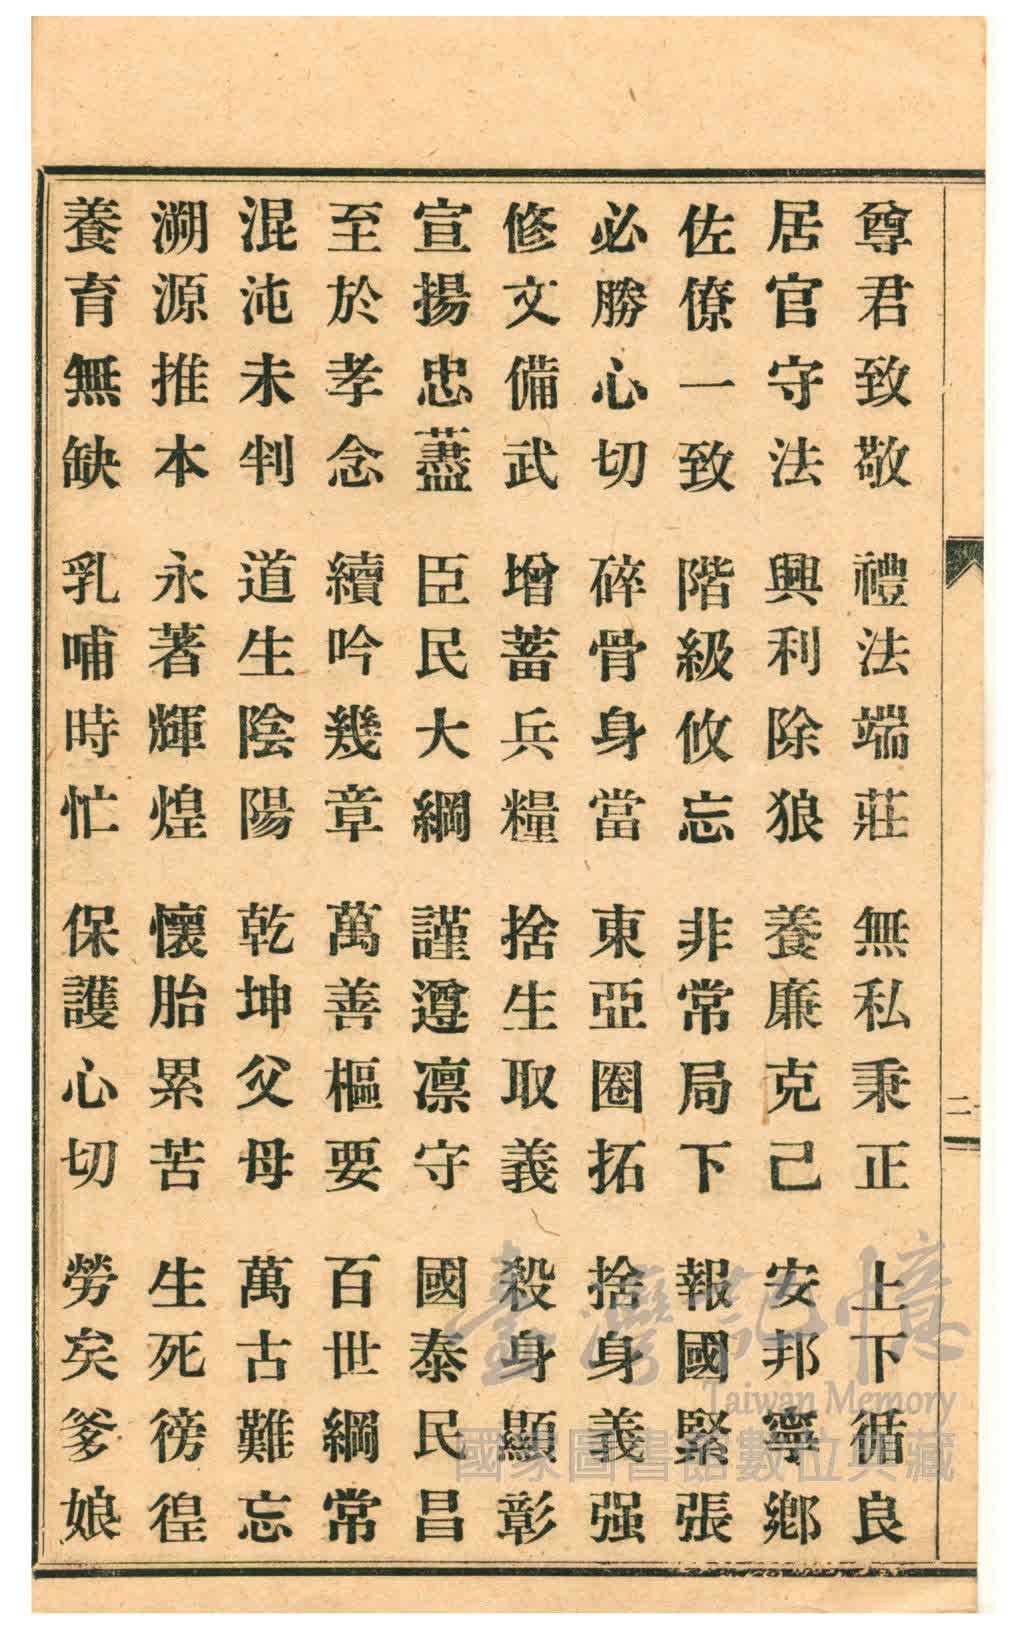 尊君致敬 禮法端莊 無私秉正 上下循良
居官守法 興利除狼 養廉克己 安邦寧鄉
佐僚一致 階級攸忘 非常局下 報國緊張
必勝心切 碎骨身當 東亞圈拓 捨身義强
修文備武 增蓄兵糧 捨生取義 殺身顯彰
宣揚忠藎 臣民大綱 謹遵凜守 國泰民昌
至於孝念 續吟幾章 萬善樞要 百世綱常
混沌未判 道生陰陽 乾坤父母 萬古難忘
溯源推本 永著輝煌 懷胎累苦 生死徬徨
養育無缺 乳哺時忙 保護心切 勞矣爹娘
二
臺灣記憶
Taiwan Memory
國家圖書館數位典藏